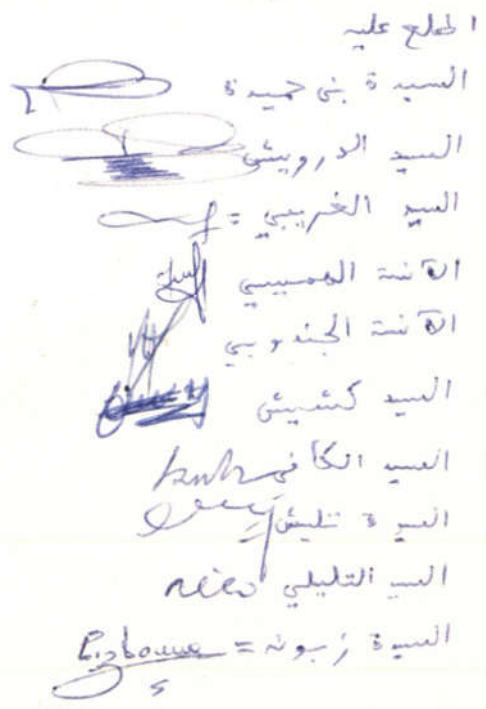 اطلع عليه
السيدة بني حميدة
السيد الدرويش
السيد الغريبي =
الآنسة الهميسي
الآنسة الجندوبي
السيد كشيش
السيد الكافي
السيدة تليش
السيد التليلي
السيدة زبونه = E. zbouna